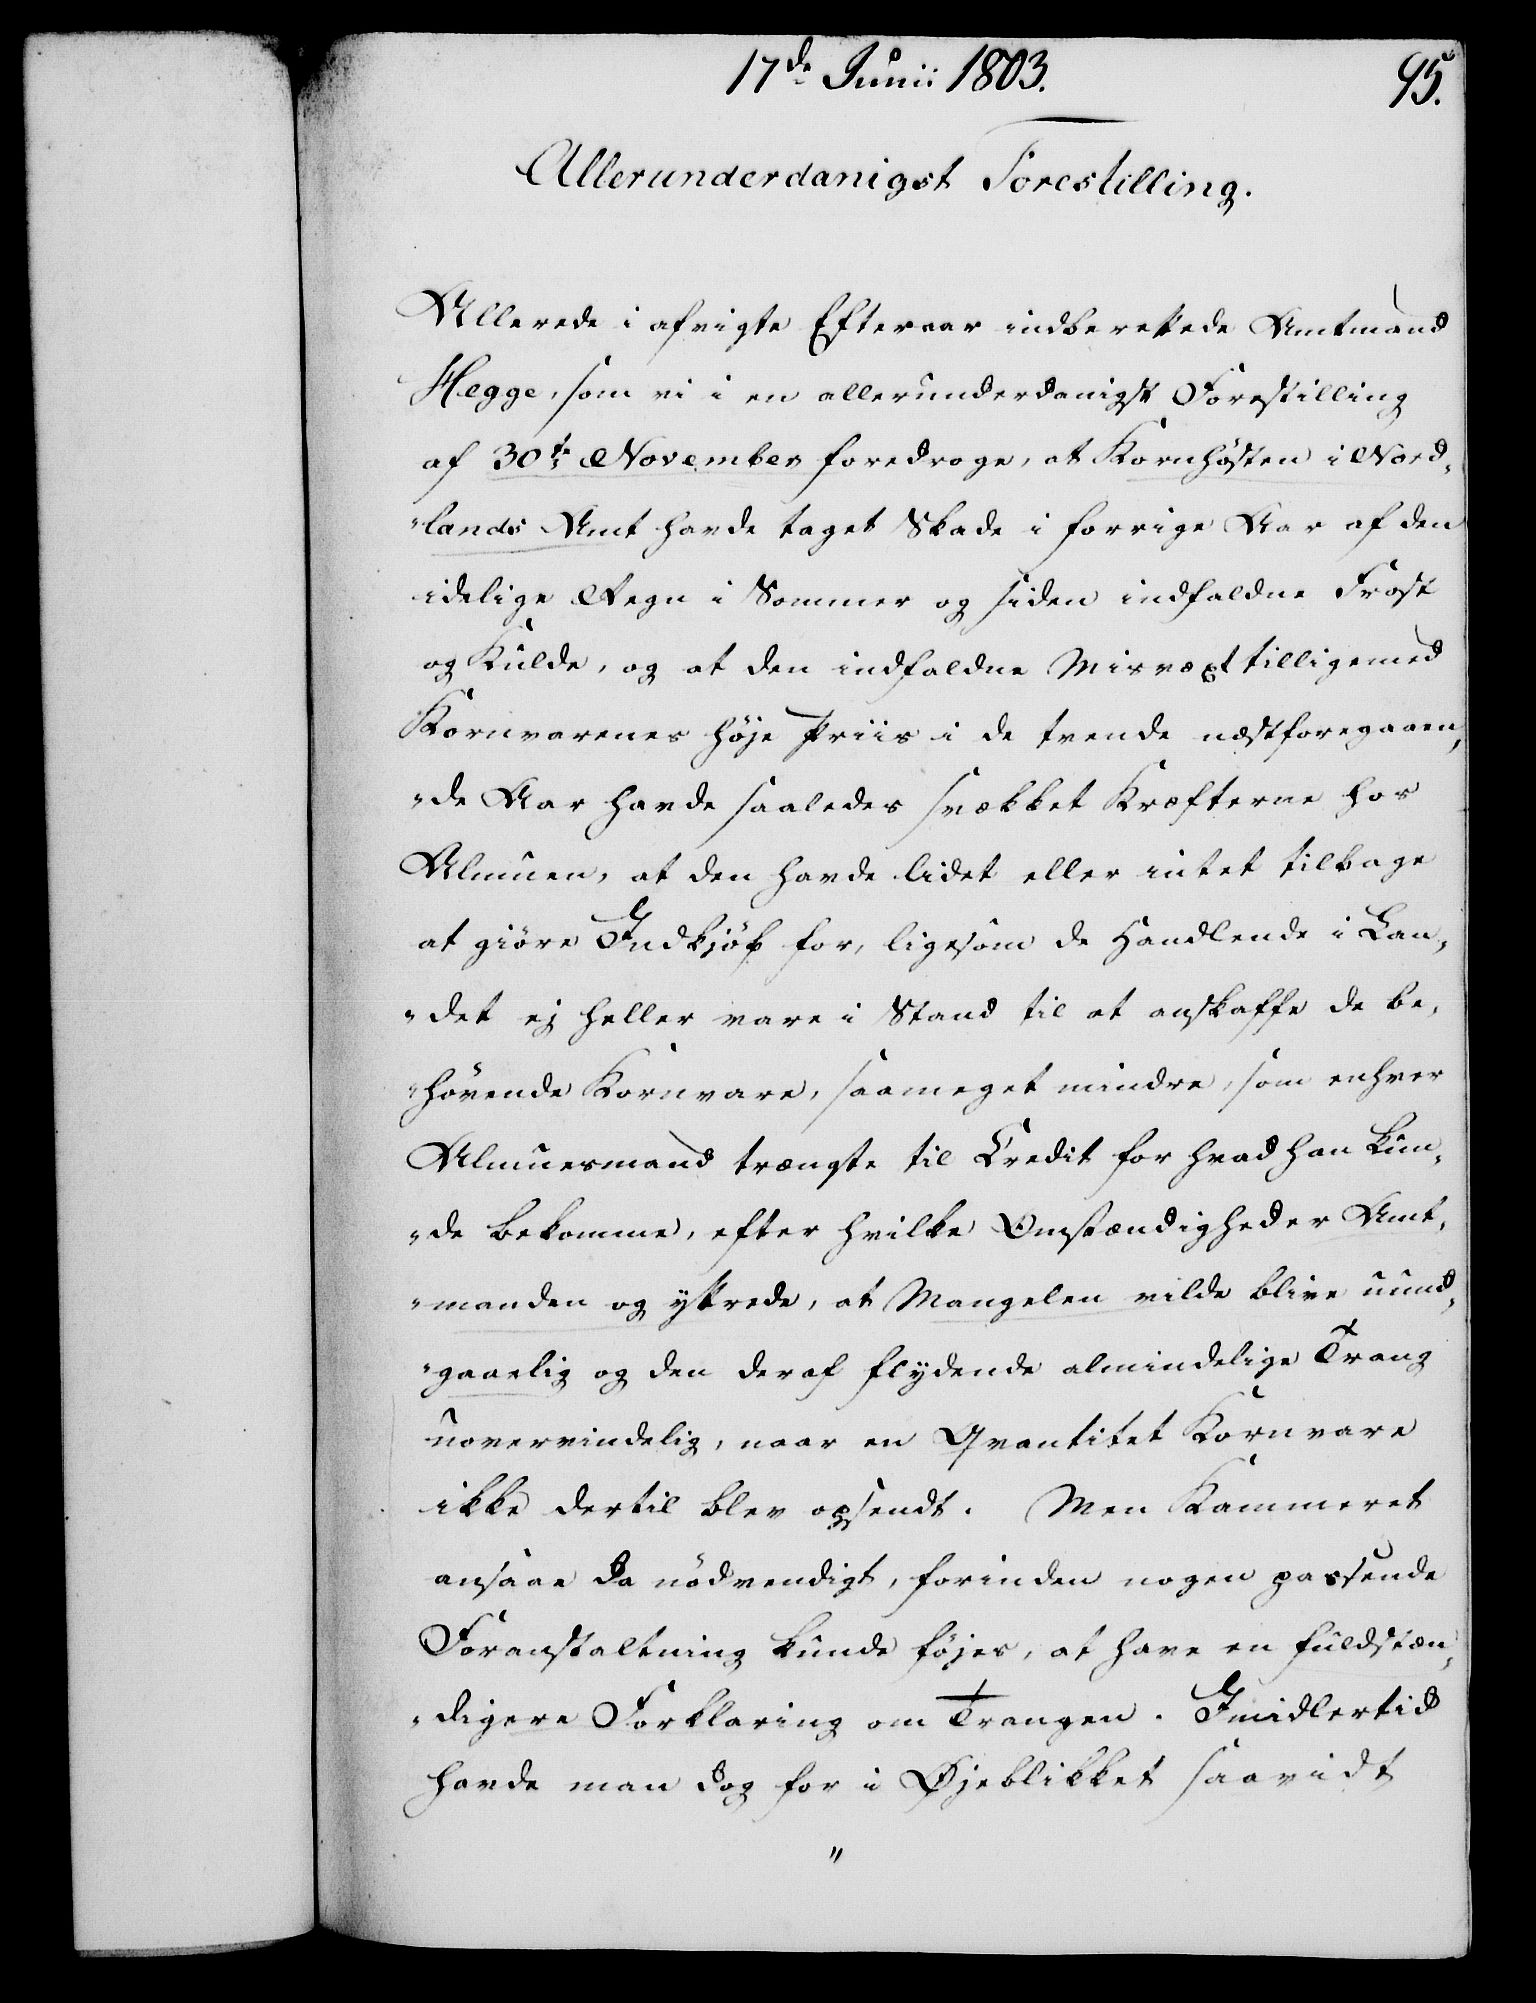 17de Junii 1803.
95.
Allerunderdanigst Forestilling.
Allerede i afvigte Efteraar indberettede Amtmand
Hegge, som vi i en allerunderdanigst Forestilling
af 30te November foredroge, at Kornhøsten i Nord,
"lands Amt havde taget Skade i forrige Aar af den
idelige Regn i Sommer og siden indfaldne Frost
og Kulde, og at den indfaldne Misvæxt tilligemed
Kornvarenes høje Priis i de trende næstforegaaen,
"de Aar havde saaledes svækket Kræfterne hos
Almuen, at den havde lidet eller intet tilbage
at giøre Indkjøb for, ligesom de Handlende i Lan,
"det ej heller vare i Stand til at anskaffe de be,
"hövende Kornvare, saameget mindre, som enhver
Almuesmand trængte til Credit for hvad han kun,
"de bekomme, efter hvilke Omstændigheder Amt,
"manden og yttrede, at Mangelen vilde blive uund,
"gaaelig og den deraf flydende almindelige Trang
uovervindelig, naar en Qvantitet Kornvare
ikke dertil blev opsendt. Men Kammeret
ansaae da nödvendigt, forinden nogen passende
Foranstaltning kunde föjes, at have en fuldstæn,
"digere Forklaring om Trangen. Imidlertid
havde man dog for i Øjeblikket saavidt
"